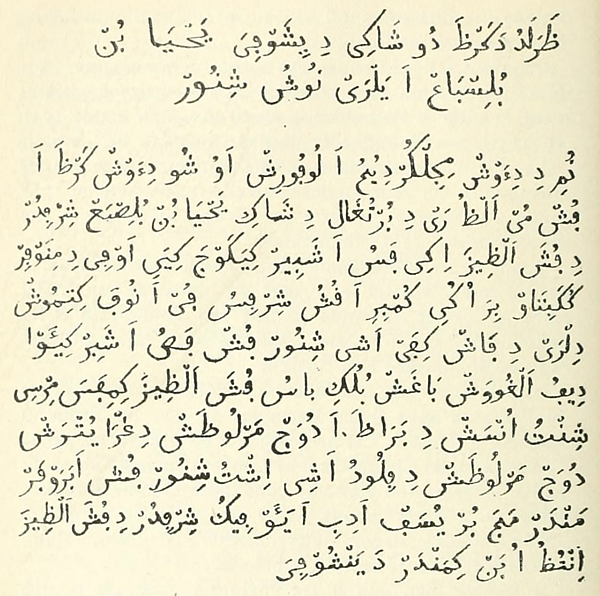 ظَرَلَدُ دَكَرْظَ ذُو شَاكِي دِ يِشَوْفِيَ يَحْيَا بُنْ
بُلِسْبَاعْ اَ يَلْرَيْ نُوشُ شِنُورْ
نُمِ دِ دِءَوْشْ مِجِلَّكُرْدِيُيُ اَ لُوفُورِشْ اَوْ شُو دِءَوْشْ كَرْظَ اَ
فُشْ مُيْ اَلْظُ رَيْ دِ بُرْتُغَال دِ شَاكِ يَحْيَا بُنْ بُلِصْبَعْ شِرْفِدُرْ
دِ فُشَ اَلْظِيزَ اِكِي فَسُ اَ شَبِيرْ كِيَكَوْجَ كِيَي اَوْفِي دِ مِنَوْفِرْ
كُكِبْنَاوْ بِرَ اُكُي كُمْبِرِ اَ فُشُ شِرْفِسُ فُيْ اَ نُوفَ كِتِمُوشْ
دِلْرَيْ دِ فَاسْ كِفَيْ اَشِي شِنُورْ فُشْ فَصُ اَ شَبِرْ كِيَوْا
دِيفُ اَلْغُووَشْ بَاغَشْ بُلُكِ باسُ فُشَ اَلْظِيزَ كِمِفَسَ مِرْسِي
شِنْتُ اُنْسَشْ دِ بَرَاظَ . اَ دُوَجْ مَرْلُوظَشْ دِ غْرَا يُتْرَشْ
دُوَجْ مَرْلُوظَشْ دِ فِلُودُ اَشِي اِشْتُ شِنُورْ فُشْ اَبَرَوْفِرْ
مَنْدَرْ مَجَ بُرْ يُسَفْ اَدِبِ اَيَوْ فِيكُ شِرْفِدُرْ دِ فُشَ اَلْظِيزَ
اِنْفْظُ اُ بَنْ كِمَنْدَرْ دَ يَنْشُوْفِيَ